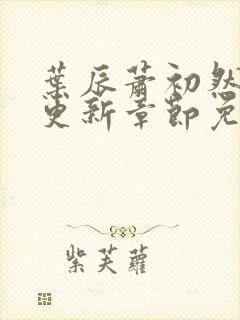 葉辰蕭初然
更新章節免
紫芙蘿